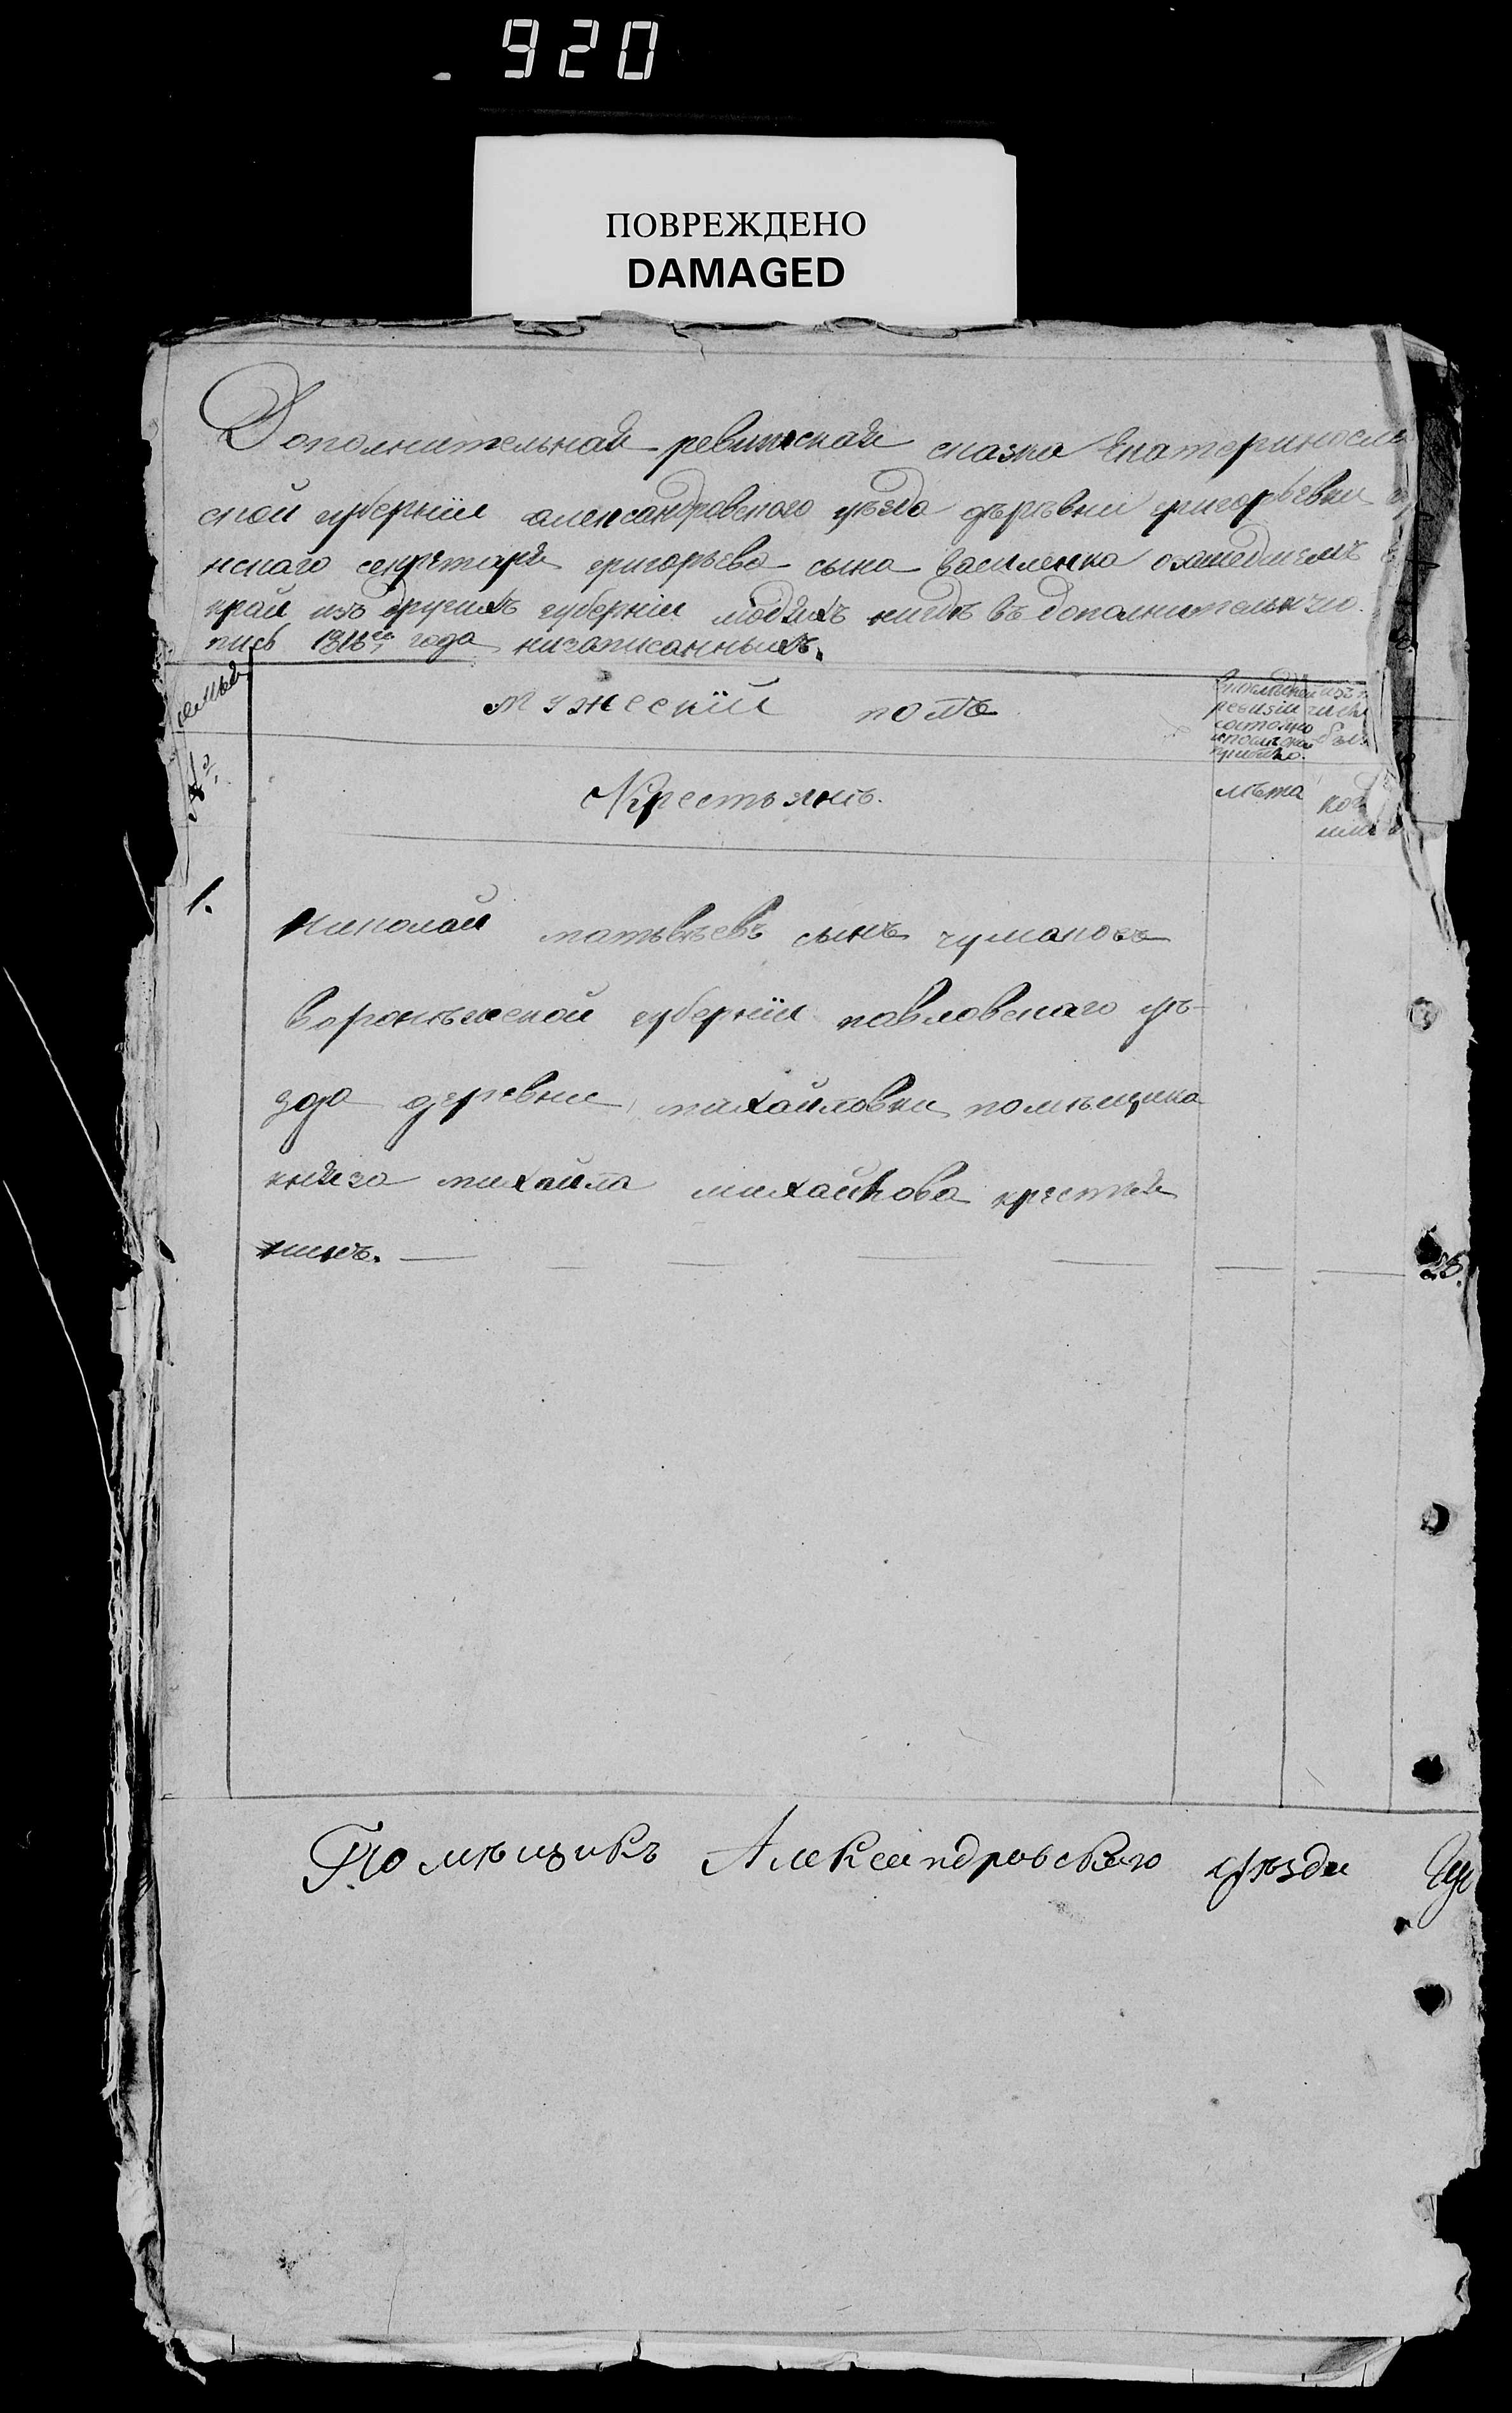 920
ПОВРЕЖДЕНО
DAMAGED
Дополнительная ревизская сказка Екатериносла
ской губернïи александровского уѣзда дѣрѣвни григорьевки
нскаго секретаря григорьева сына василенка озашедшемъ в
край изъ другихъ губернïи людяхъ нигдѣ въ дополнительную
пись 1816го года низаписанныхъ.
семьи
мужескïй полъ
ревизïи
состояло
№
Крестьянъ.
лѣта
1.
Николай матьвѣевъ сынъ чумаковъ
воронѣжской губернïи павловскаго уѣ-
зда деревни михайловки помѣщика
князя михаила михайкова крестья
нинъ.
Помѣщикъ Александровскаго уѣзда